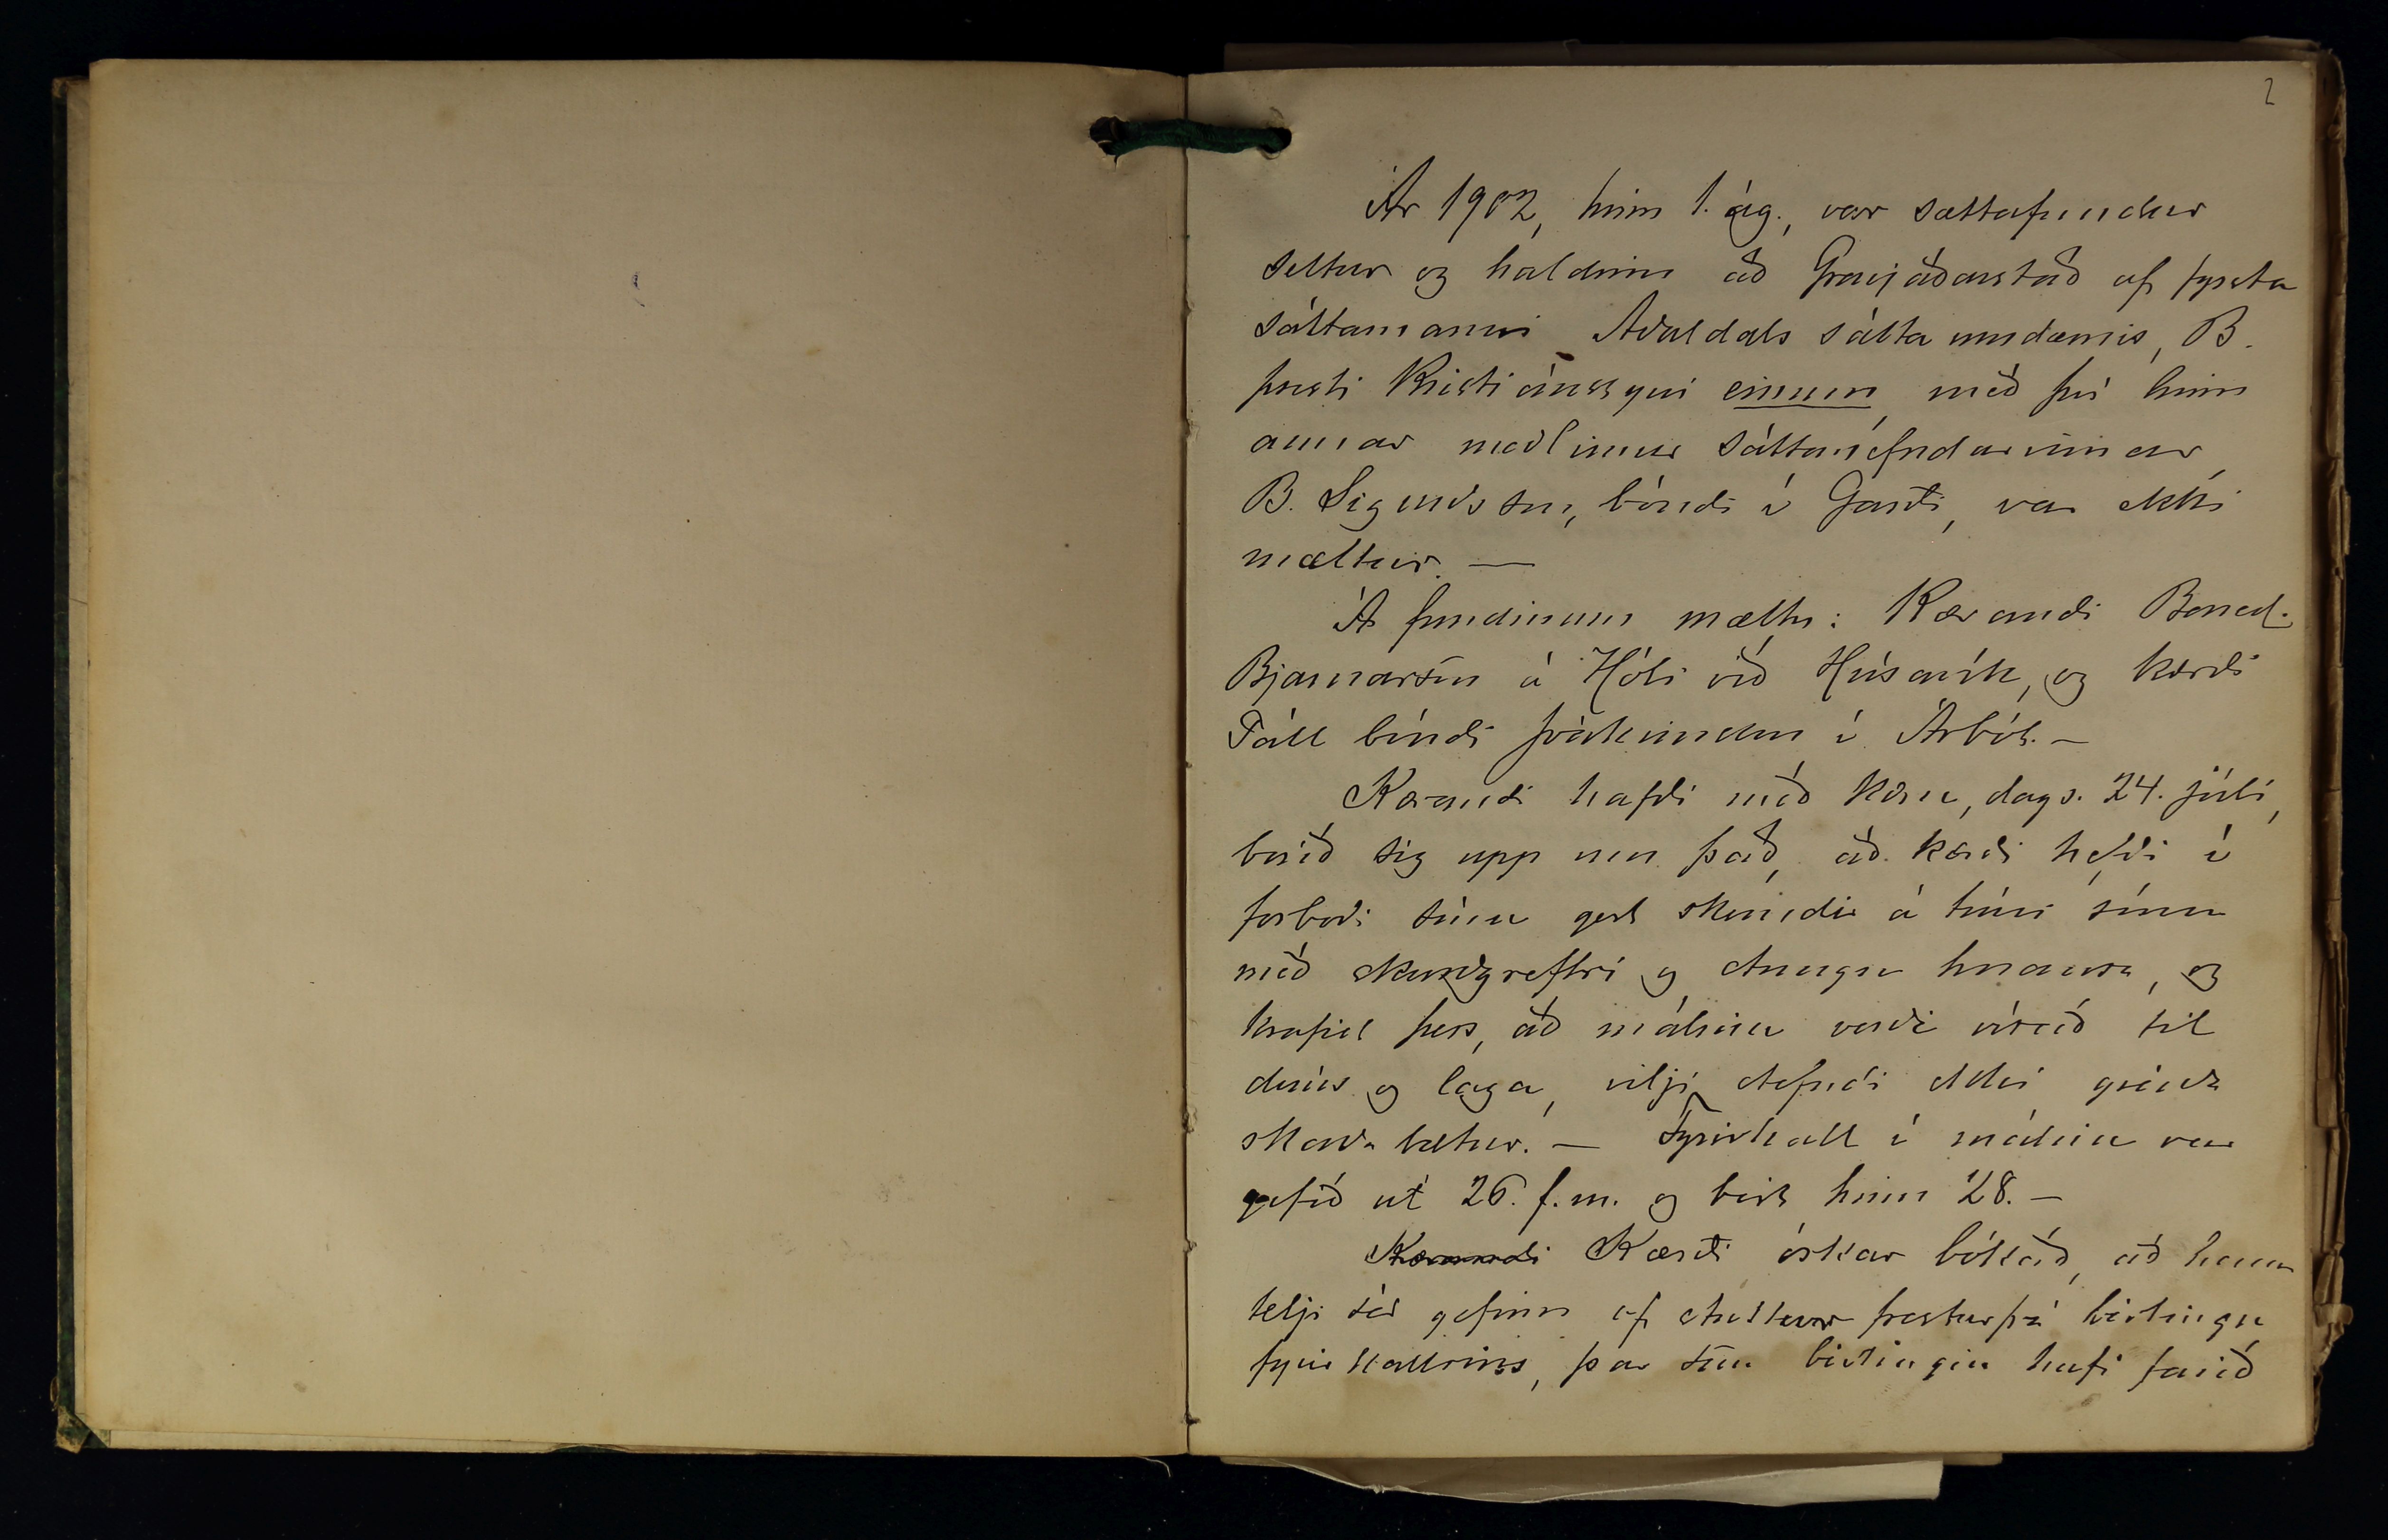 2
Ár 1902, hinn 1. ág., var sættafundur
settur og haldinn að Grenjaðarstað af fyrsta
sáttamanni Aðaldals sátta umdæmis, B.
presti Kristjánssyni einum, með því hinn
annar meðlimur sáttanefndarinnar,
B. Sigurðsson, bóndi í Garði, var ekki
mættur. —
Á fundinum mættu: Kærandi Bened.
Bjarnarson á Hóli við Húsavík, og kærði
Páll bóndi Jóakimsson í Árbót. —
Kærandi hafði með kæru, dags. 24. júlí,
borið sig upp um það, að kærði hefði í
forboði sínu gert skemdir á túni sínu
með skurðgreftri og stungu hnausa, og
krafist þess, að málinu verði vísað til
dóms og laga, vilji stefndi ekki greiða
skaða bætur. — Fyrirkall í málinu var
gefið út 26. f.m. og birt hinn 28. —
Kærandi Kærði óskar bókað, að hann
telji sér gefinn of stuttur frestur frá birtingu
fyrirkallsins, þar sem birtingin hafi farið